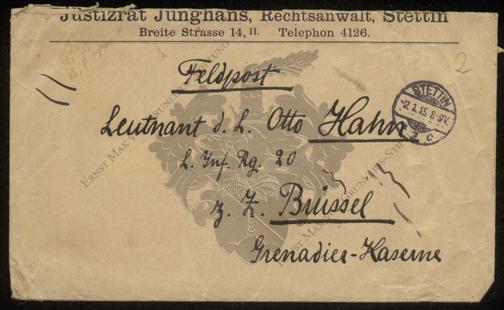 Justizrat Junghans, Rechtsanwalt, Stettin
Breite Strasse 14, II. Telephon 4126.
Feldpost
Leutnant d. L. Otto Hahn
L. Inf. Rg. 20
z. Z. Brüssel
Grenadier-Kaserne
STETTIN
1 C
2
ERNST MAX V